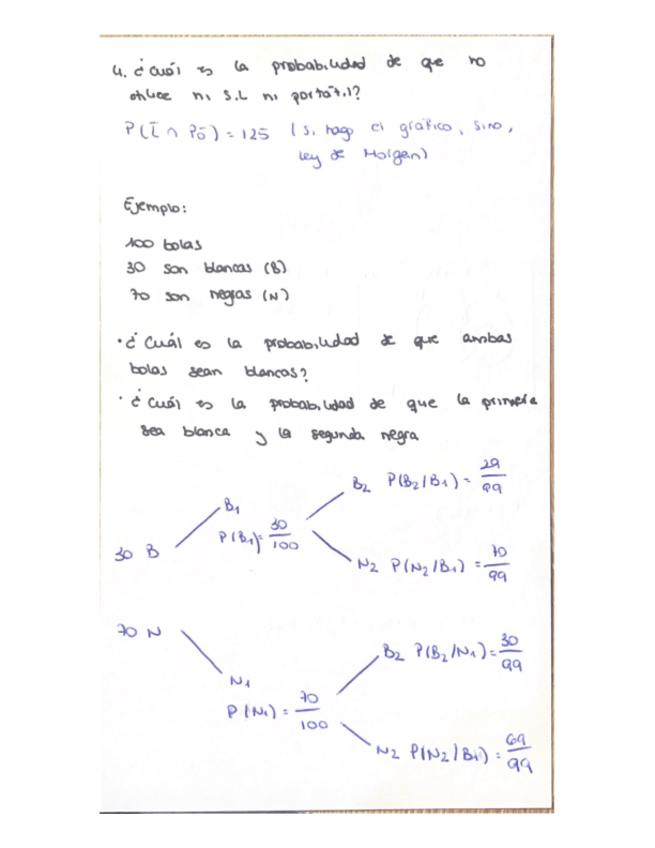 4. ¿Cuál es la probabilidad de que no
utilice ni S.L ni portátil?
P(L̄ ∩ P̄ō) = 125 (si hago el gráfico, sino,
Ley de Morgan)
Ejemplo:
100 bolas
30 son blancas (B)
70 son negras (N)
· ¿Cuál es la probabilidad de que ambas
bolas sean blancas?
· ¿Cuál es la probabilidad de que la primera
sea blanca y la segunda negra
30 B
B₁
P(B₁) = 30/100
B₂ P(B₂/B₁) = 29/99
N₂ P(N₂/B₁) = 70/99
70 N
N₁
P(N₁) = 70/100
B₂ P(B₂/N₁) = 30/99
N₂ P(N₂/B₁) = 69/99